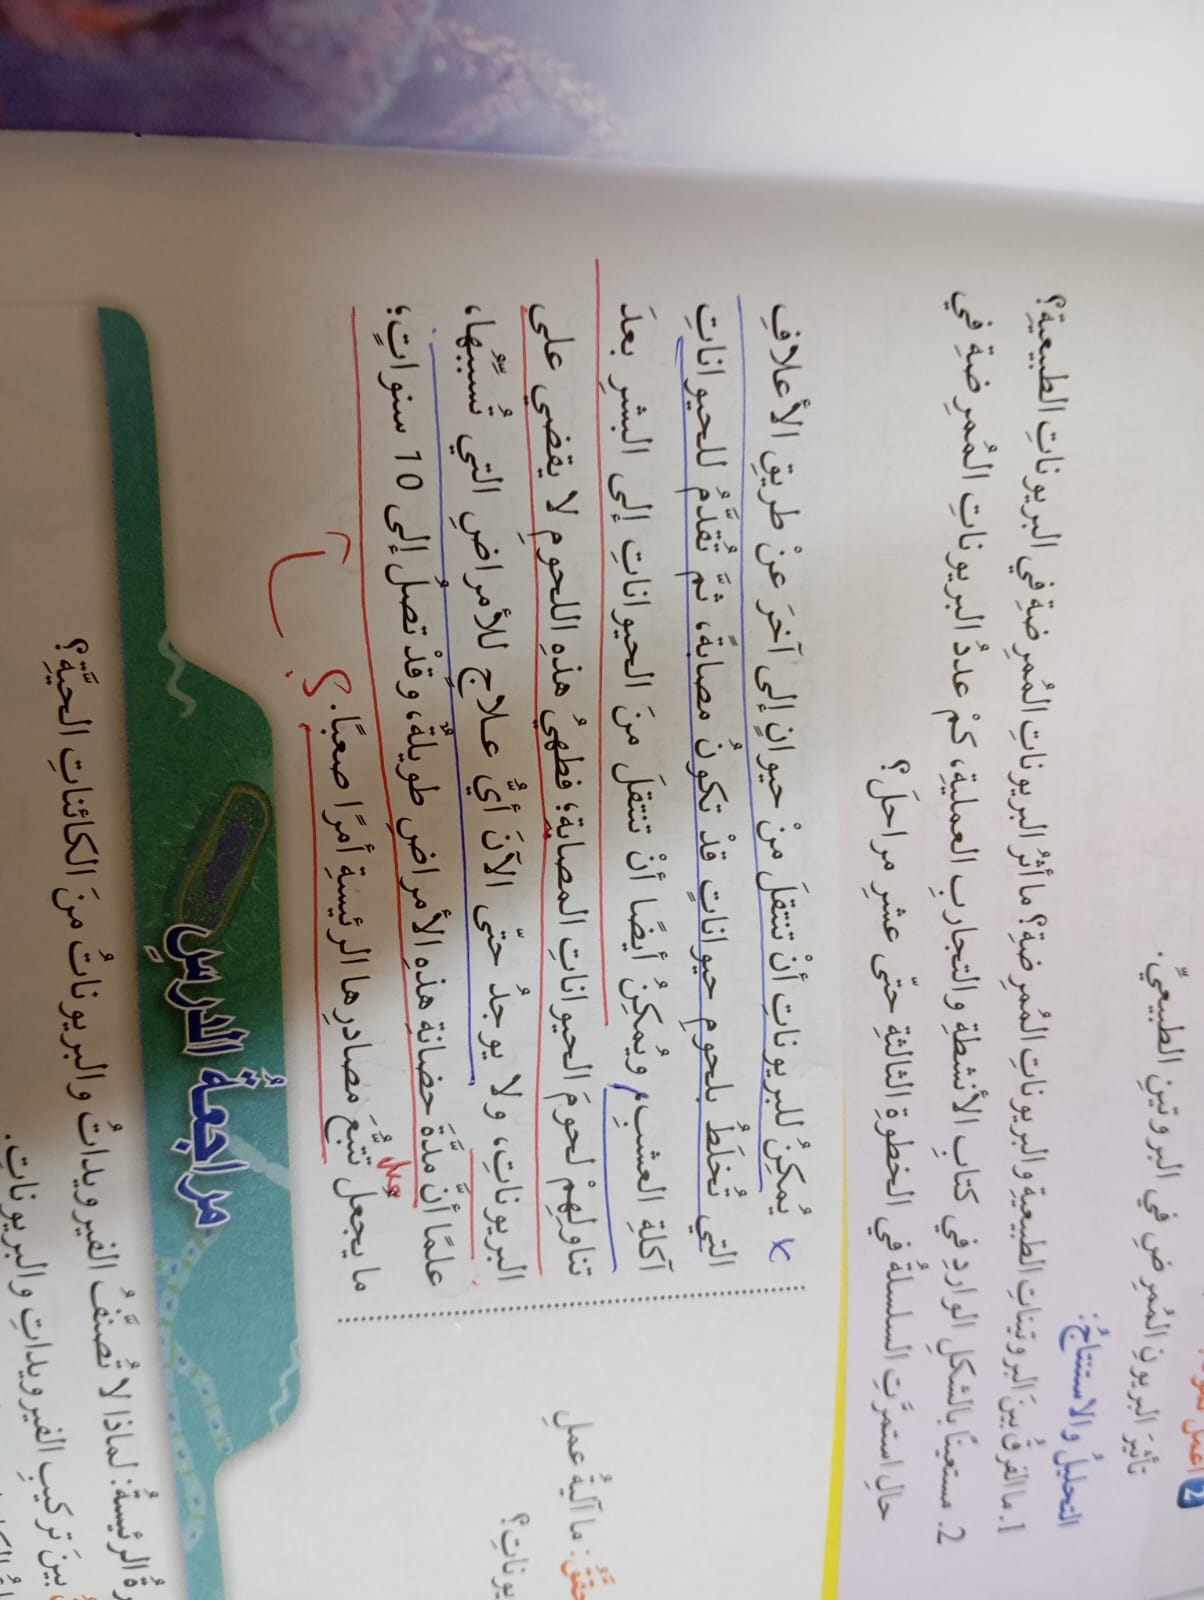 2 أعمل
تأثيرَ البريونِ المُمرِضِ في البروتينِ الطبيعيِّ.
التحليلُ والاستنتاجُ:
1. ما الفرقُ بينَ البروتيناتِ الطبيعيةِ والبريوناتِ المُمرِضةِ؟ ما أثرُ البريوناتِ المُمرِضةِ في البريوناتِ الطبيعيةِ؟
2. مستعينًا بالشكلِ الواردِ في كتابِ الأنشطةِ والتجاربِ العمليةِ، كمْ عددُ البريوناتِ المُمرِضةِ في
حالِ استمرَّتِ السلسلةُ في الخطوةِ الثالثةِ حتّى عشرِ مراحلَ؟
يُمكِنُ للبريوناتِ أنْ تنتقلَ منْ حيوانٍ إلى آخرَ عنْ طريقِ الأعلافِ
التي تُخلَطُ بلحومِ حيواناتٍ قدْ تكونُ مصابةً، ثمَّ تُقدَّمُ للحيواناتِ
آكلةِ العشبِ، ويُمكِنُ أيضًا أنْ تنتقلَ منَ الحيواناتِ إلى البشرِ بعدَ
تناولِهِمْ لحومَ الحيواناتِ المصابةِ؛ فطهيُ هذهِ اللحومِ لا يقضي على
البريوناتِ، ولا يوجدُ حتّى الآنَ أيُّ علاجٍ للأمراضِ التي تُسبِّبُها،
علمًا أنَّ مدَّةَ حضانةِ هذهِ الأمراضِ طويلةٌ، وقدْ تصلُ إلى 10 سنواتٍ؛
علل
ما يجعلُ تتبُّعَ مصادرِها الرئيسةِ أمرًا صعبًا. ؟
ما آليةُ عملِ
مراجعةُ الدرسِ
الرئيسةُ: لماذا لا تُصنَّفُ الفيرويداتُ والبريوناتُ منَ الكائناتِ الحيَّةِ؟
بينَ تركيبِ الفيرويداتِ والبريوناتِ.